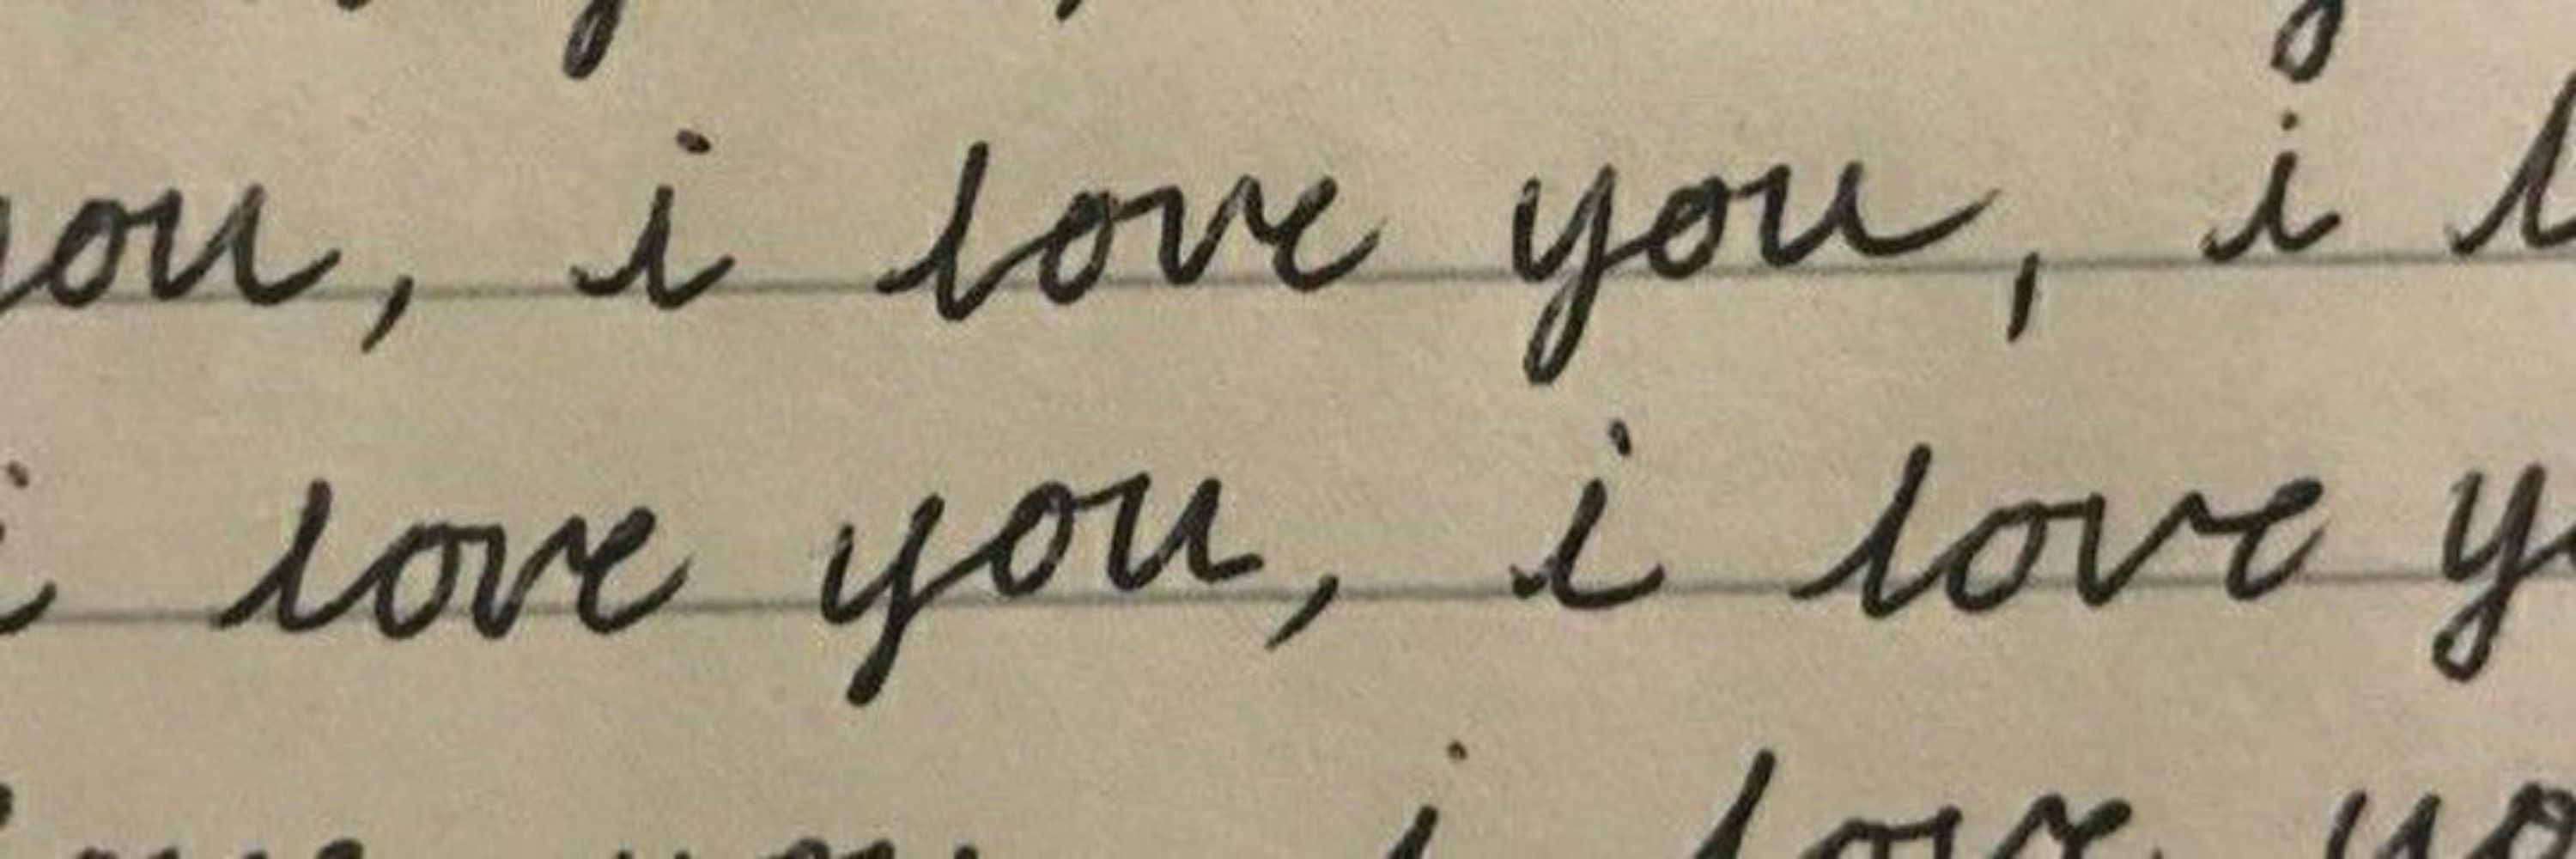 you, i love you, i
i love you, i love
i love